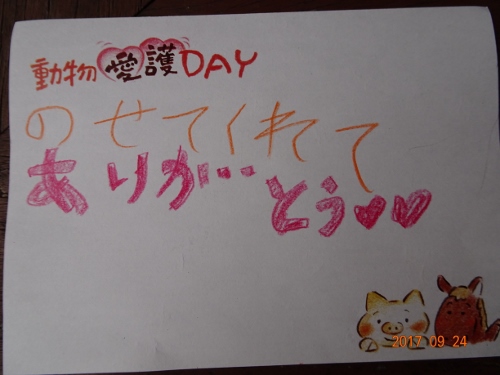 動物愛護DAY
のせてくれてて
ありが…とう♥♥
2017 09 24